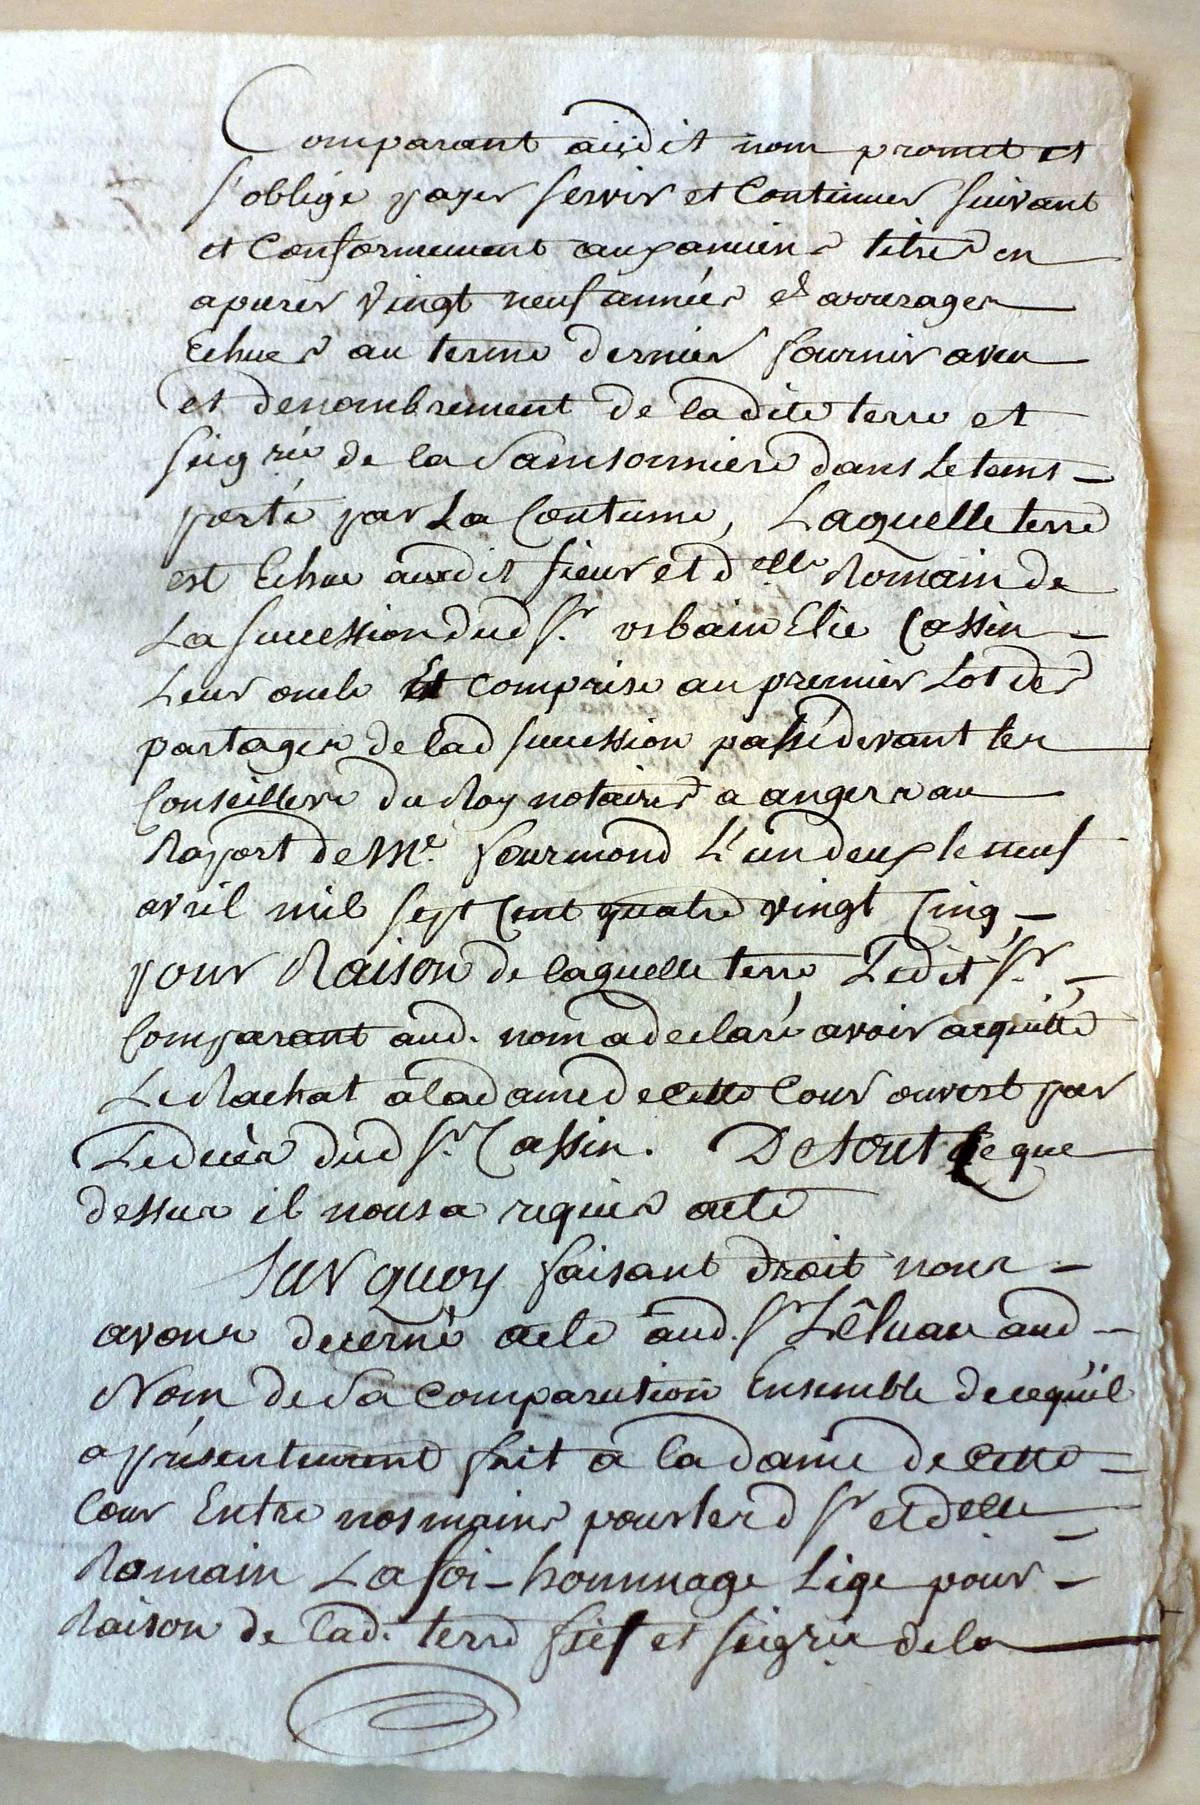 Comparant audit nom promet et
s'oblige payer servir et Continuer suivant
et Conformement aux anciens titres en
apurer vingt neuf années d'arrerages
Echues au terme dernier fournir aveu
et denombrement de la dite terre et
seigrie de la Samsonniere dans Le tems
porté par La Coutume, Laquelle terre
est Echue auxdit sieur et delle Romain de
La succession dud Sr. urbain Elie Cassin
Leur oncle Et comprise au premier Lot des
partages de lad succession passé devant les
Conseillers du Roy notaires a angers au
Raport de Me. fourmond L'un deux le neuf
avril mil sept Cent quatre vingt Cinq
pour Raison de laquelle terre Ledit Sr.
Comparant aud. nom a declaré avoir acquitté
Le Rachat a la dame de cette Cour ouvert par
Le decès dud Sr. Cassin. De tout Ce que
dessus il nous a requis acte
Sur quoy faisant droit nous
avons decerné acte aud. Sr aud
Nom de Sa comparution Ensemble de ce qu'il
a présentement fait a la dame de Cette
Cour Entre nos mains pour lesd Sr et delle
Romain La foi-hommage Lige pour
Raison de lad. terre fief et seigrie de la